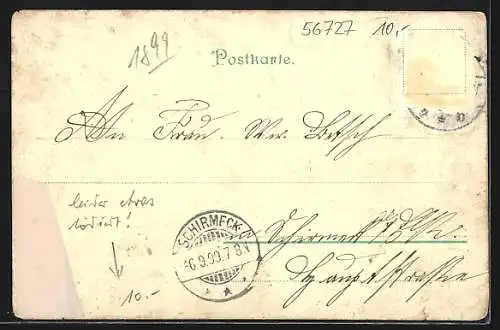 56727 10,-
1899
Postkarte.
An Frau. Ww. Betsch
leider etwas
SCHIRMECK
6.9.99.7-8V
Schirmeck
Hauptstrasse
10.-